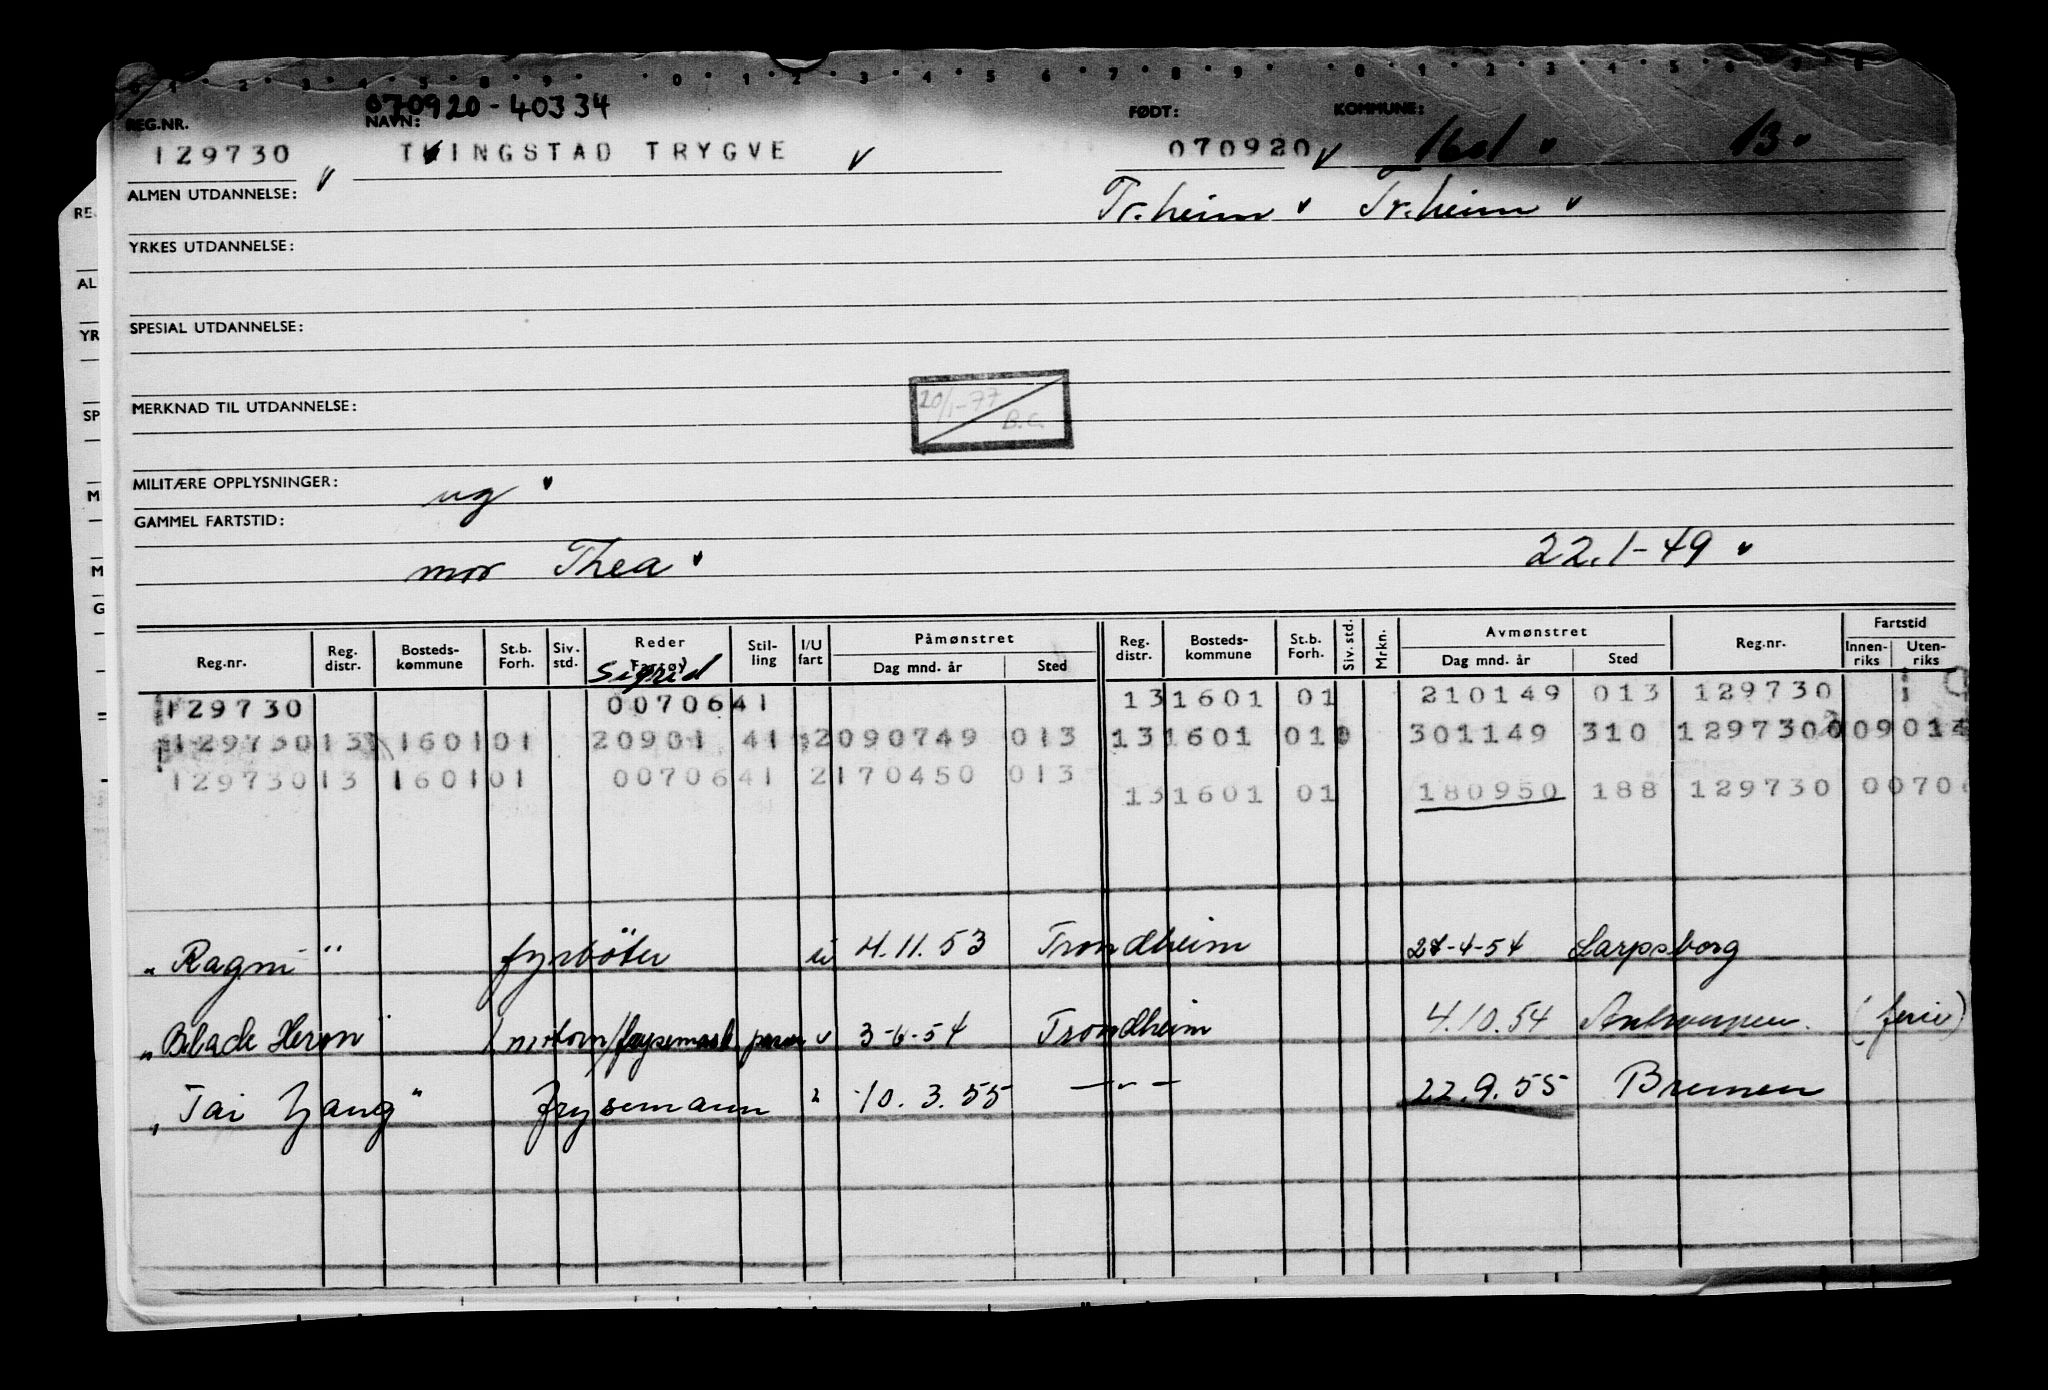 070920-40334
REG.NR. NAVN: FØDT: KOMMUNE:
129730 TVINGSTAD TRYGVE 070920 1601 13
ALMEN UTDANNELSE: Tr.heim Tr.heim
YRKES UTDANNELSE:
SPESIAL UTDANNELSE:
20/1-77
B.C.
MERKNAD TIL UTDANNELSE:
MILITÆRE OPPLYSNINGER: ug
GAMMEL FARTSTID:
mor Thea 22.1-49
Reg.nr. Reg. distr. Bosteds- kommune St.b. Forh. Siv. std. Reder Fartøy Stil- ling I/U fart Påmønstret Dag mnd. år Sted Reg. distr. Bosteds- kommune St.b. Forh. Siv. std. Mrkn. Avmønstret Dag mnd. år Sted Reg.nr. Fartstid Innen- riks Uten- riks
Sigrid
129730 00706 41 13 1601 01 210149 013 129730
129730 13 1601 01 20901 41 2 090749 013 13 1601 01 301149 310 129730 009 014
129730 13 1601 01 00706 41 2 170450 013 13 1601 01 180950 188 129730 0070
"Ragni" fyrböter u 4.11.53 Trondheim 4-54 Sarpsborg
"Belade Heron" 3-6-54 Trondheim 4.10.54 Antwerpen. (ferie)
"Tai Yang" frysemann 10.3.55 —"— 22.9.55 Bremen